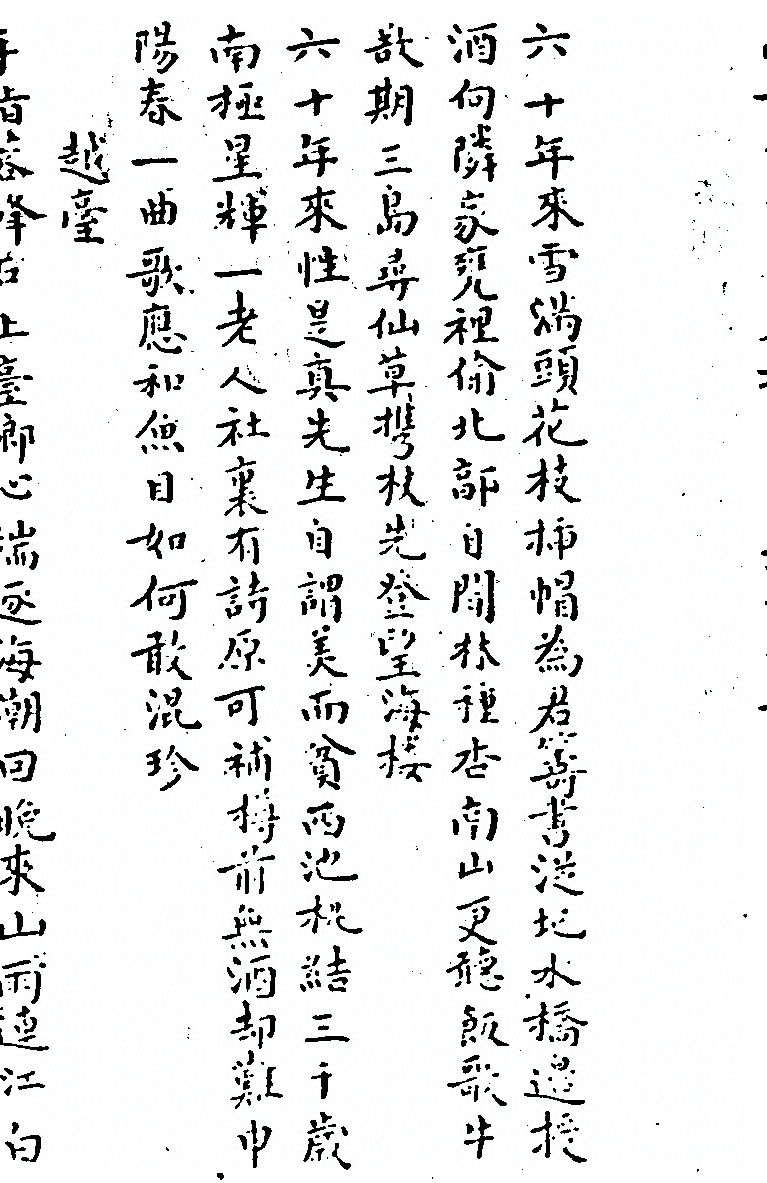 六十年來雪滿頭花枝揷帽為君籌書從圯水橋邊授
酒向隣家甕裡偷北部自閒林種杏南山更聽飯歌牛
欲期三島尋仙草携杖先登望海楼
六十年來性是真先生自謂美而貧西池桃結三千歲
南極星輝一老人社裏有詩原可補樽前無酒却難申
陽春一曲歌應和魚目如何敢混珍
越臺
峰右上臺郎心喘逐海潮回晚來山雨連江白